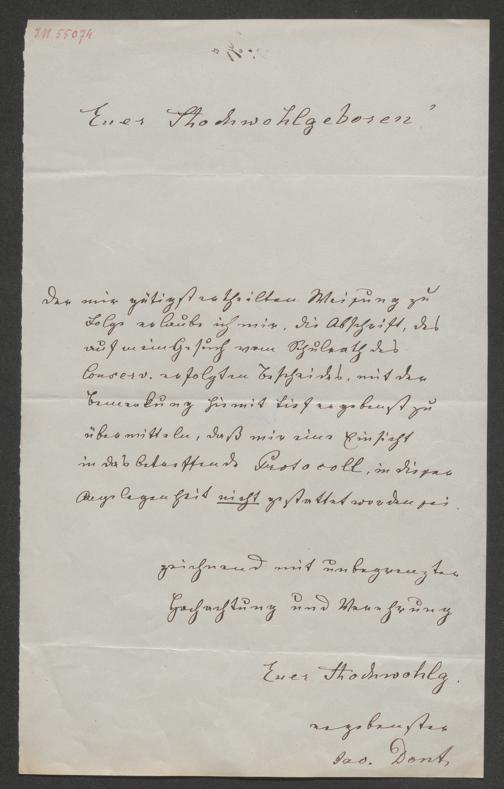 I.N. 55074
Euer Hochwohlgeboren!
Der mir gütigst ertheilten Weisung zu
Folge erlaube ich mir, die Abschrift, des
auf mein Gesuch vom Schulrath des
Conserv. erfolgten Bescheides, mit der
Bemerkung hiemit tief ergebenst zu
übermitteln, daß mir eine Einsicht
in das betreffende Protocoll, in dieser
Angelegenheit nicht gestattet worden sei.
zeichnend mit unbegrenzter
Hochachtung und Verehrung
Euer Hochwohlg.
ergebenster
Jac. Dont